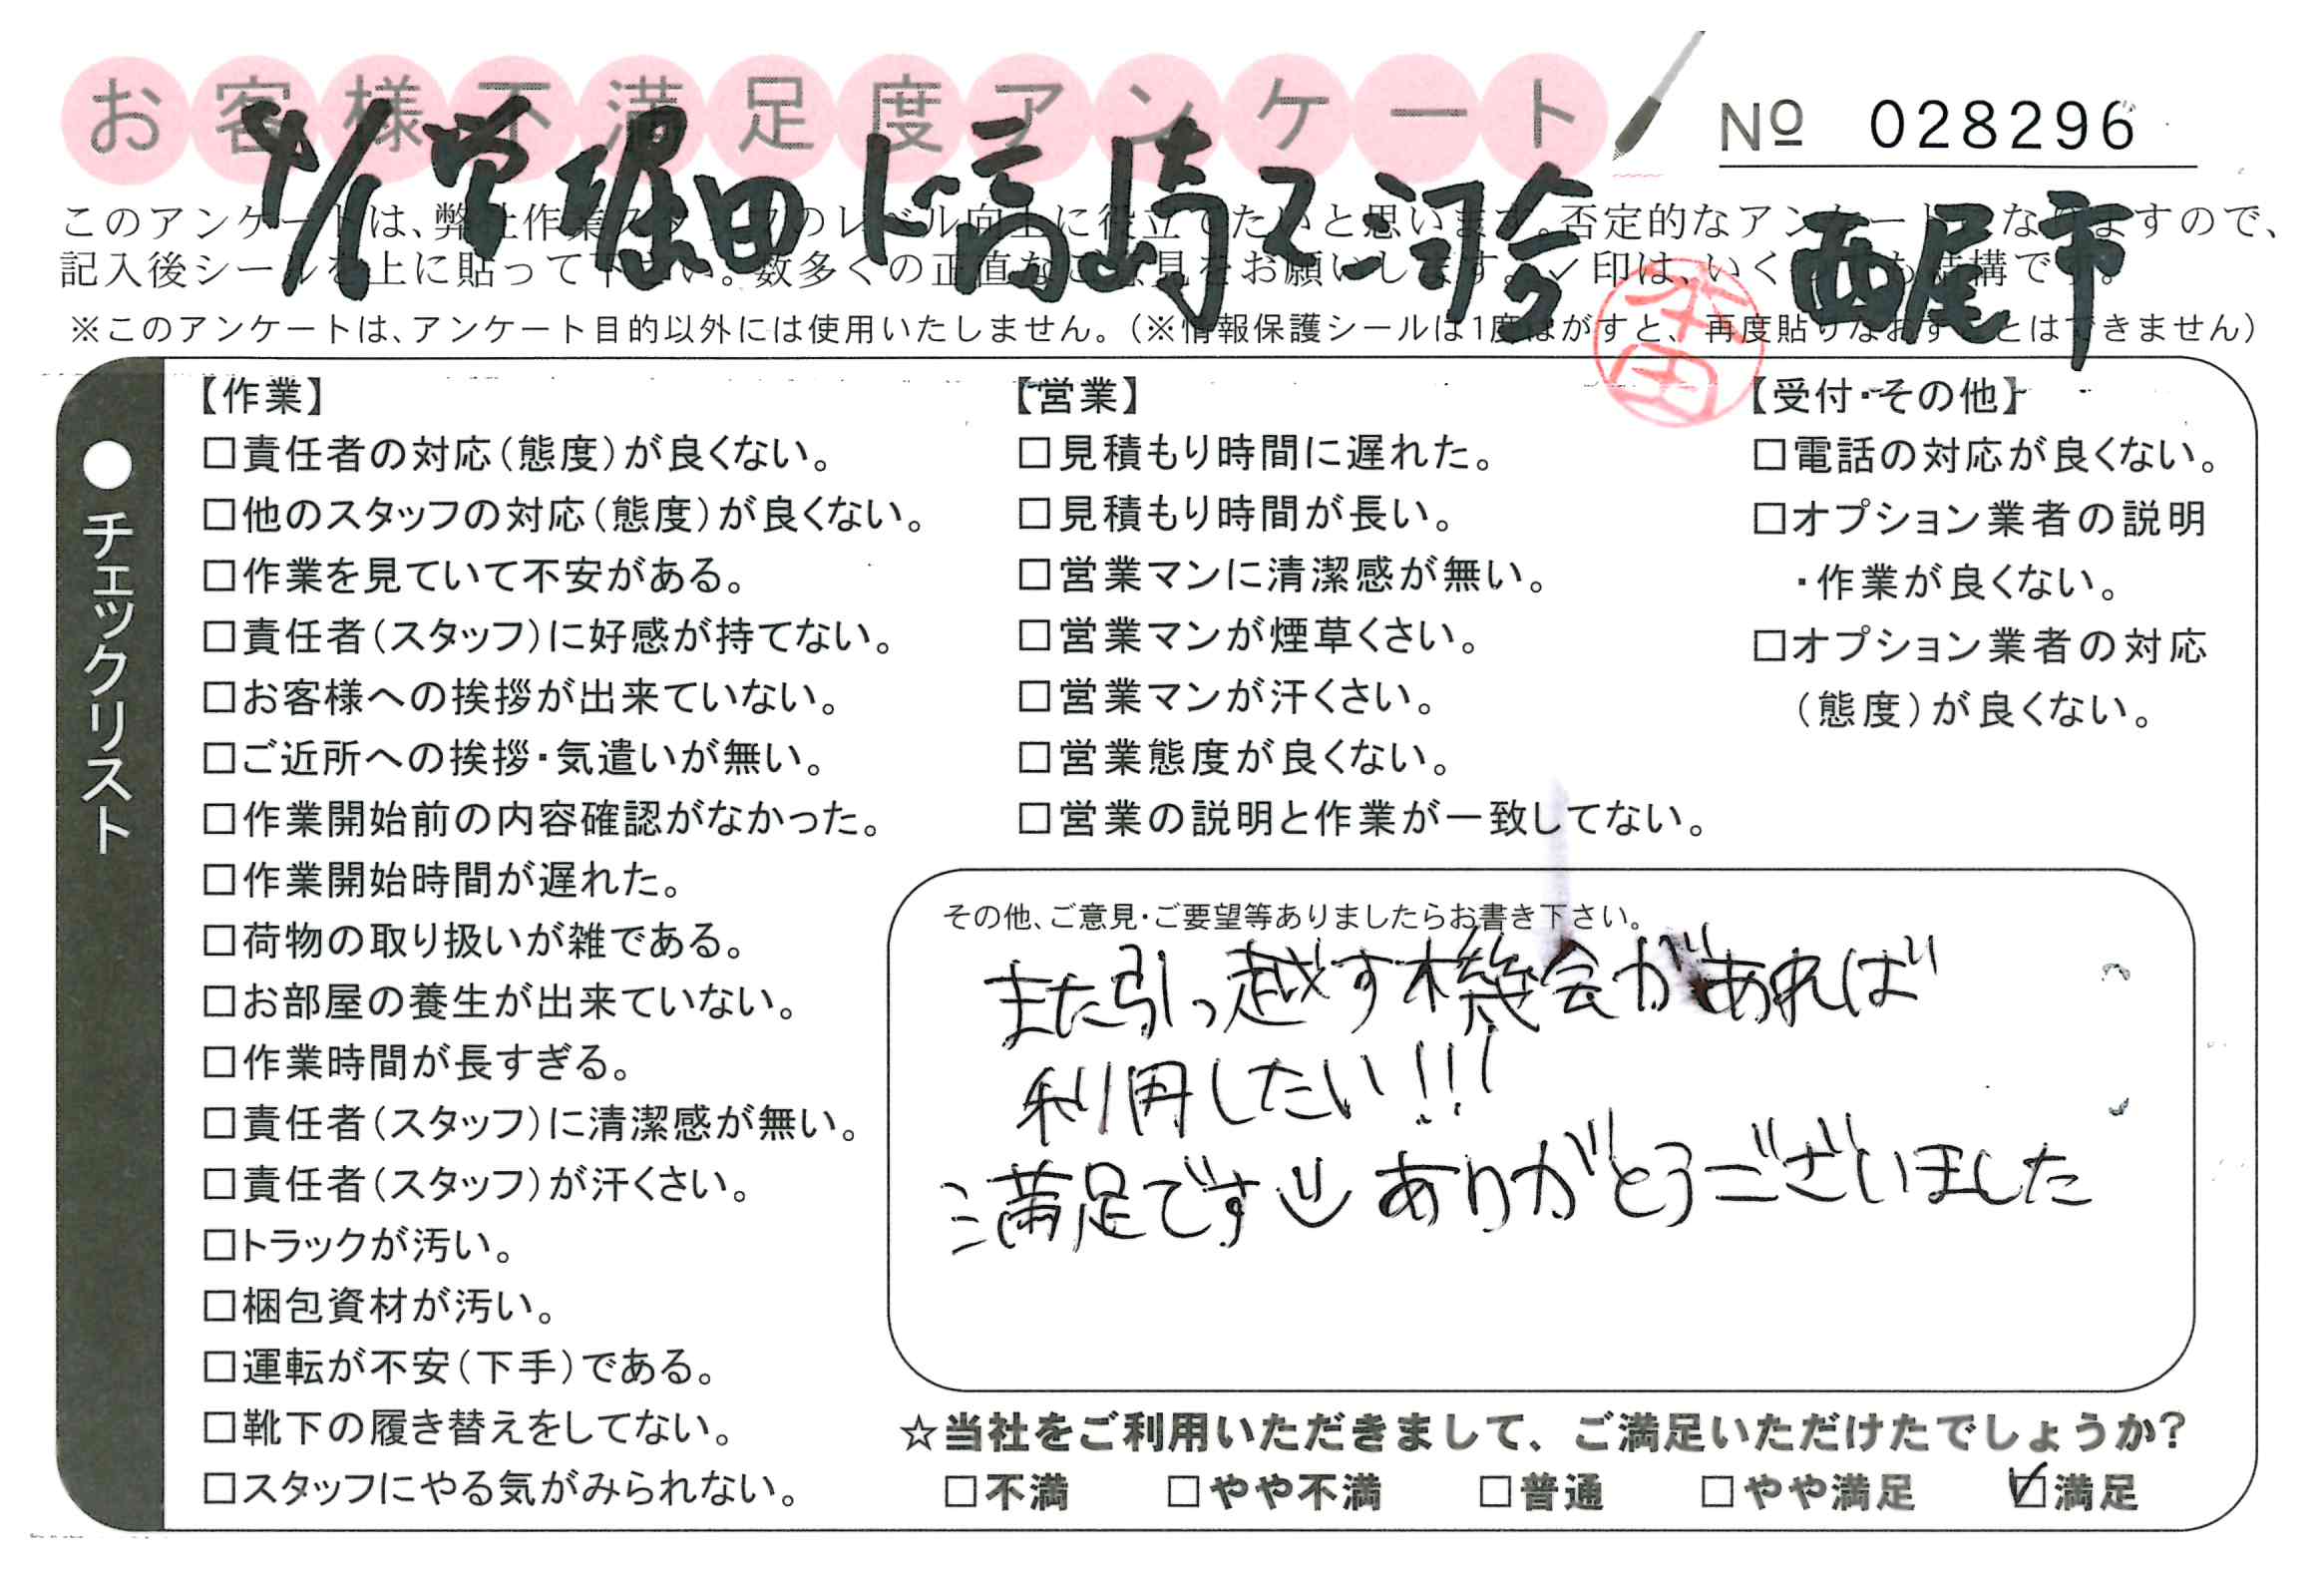 お客様不満足度アンケート
№ 028296
4/1 営堀田 ド高崎 ス河合 西尾市
このアンケートは、弊社作業スタッフのレベル向上に役立てたいと思います。否定的なアンケートになりますので、
記入後シールを上に貼って下さい。数多くの正直なご意見をお願いします。✓印は、いくつでも結構です。
※このアンケートは、アンケート目的以外には使用いたしません。(※情報保護シールは1度はがすと、再度貼りなおすことはできません)
本田
●チェックリスト
【作業】
□責任者の対応(態度)が良くない。
□他のスタッフの対応(態度)が良くない。
□作業を見ていて不安がある。
□責任者(スタッフ)に好感が持てない。
□お客様への挨拶が出来ていない。
□ご近所への挨拶・気遣いが無い。
□作業開始前の内容確認がなかった。
□作業開始時間が遅れた。
□荷物の取り扱いが雑である。
□お部屋の養生が出来ていない。
□作業時間が長すぎる。
□責任者(スタッフ)に清潔感が無い。
□責任者(スタッフ)が汗くさい。
□トラックが汚い。
□梱包資材が汚い。
□運転が不安(下手)である。
□靴下の履き替えをしてない。
□スタッフにやる気がみられない。
【営業】
□見積もり時間に遅れた。
□見積もり時間が長い。
□営業マンに清潔感が無い。
□営業マンが煙草くさい。
□営業マンが汗くさい。
□営業態度が良くない。
□営業の説明と作業が一致してない。
【受付・その他】
□電話の対応が良くない。
□オプション業者の説明
・作業が良くない。
□オプション業者の対応
(態度)が良くない。
その他、ご意見・ご要望等ありましたらお書き下さい。
また引っ越す機会があれば
利用したい!!!
満足です ありがとうございました
☆当社をご利用いただきまして、ご満足いただけたでしょうか?
□不満 □やや不満 □普通 □やや満足 ☑満足